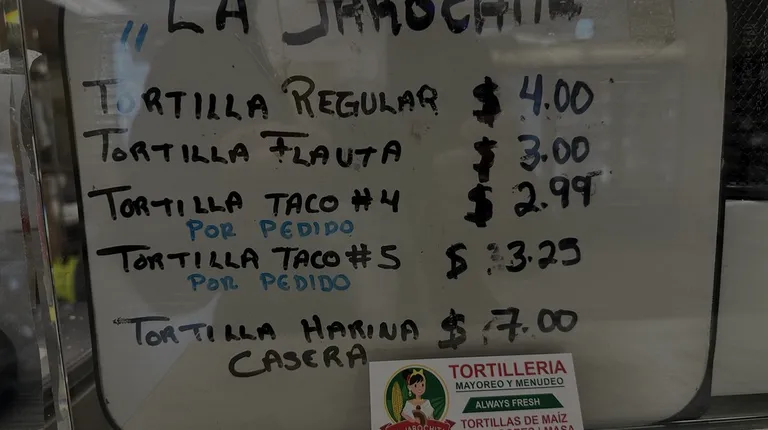 "LA JAROCHITA
TORTILLA REGULAR $ 4.00
TORTILLA FLAUTA $ 3.00
TORTILLA TACO #4 $ 2.99
POR PEDIDO
TORTILLA TACO #5 $ 3.25
POR PEDIDO
TORTILLA HARINA $ 7.00
CASERA
TORTILLERIA
MAYOREO Y MENUDEO
ALWAYS FRESH
TORTILLAS DE MAÍZ
MASA